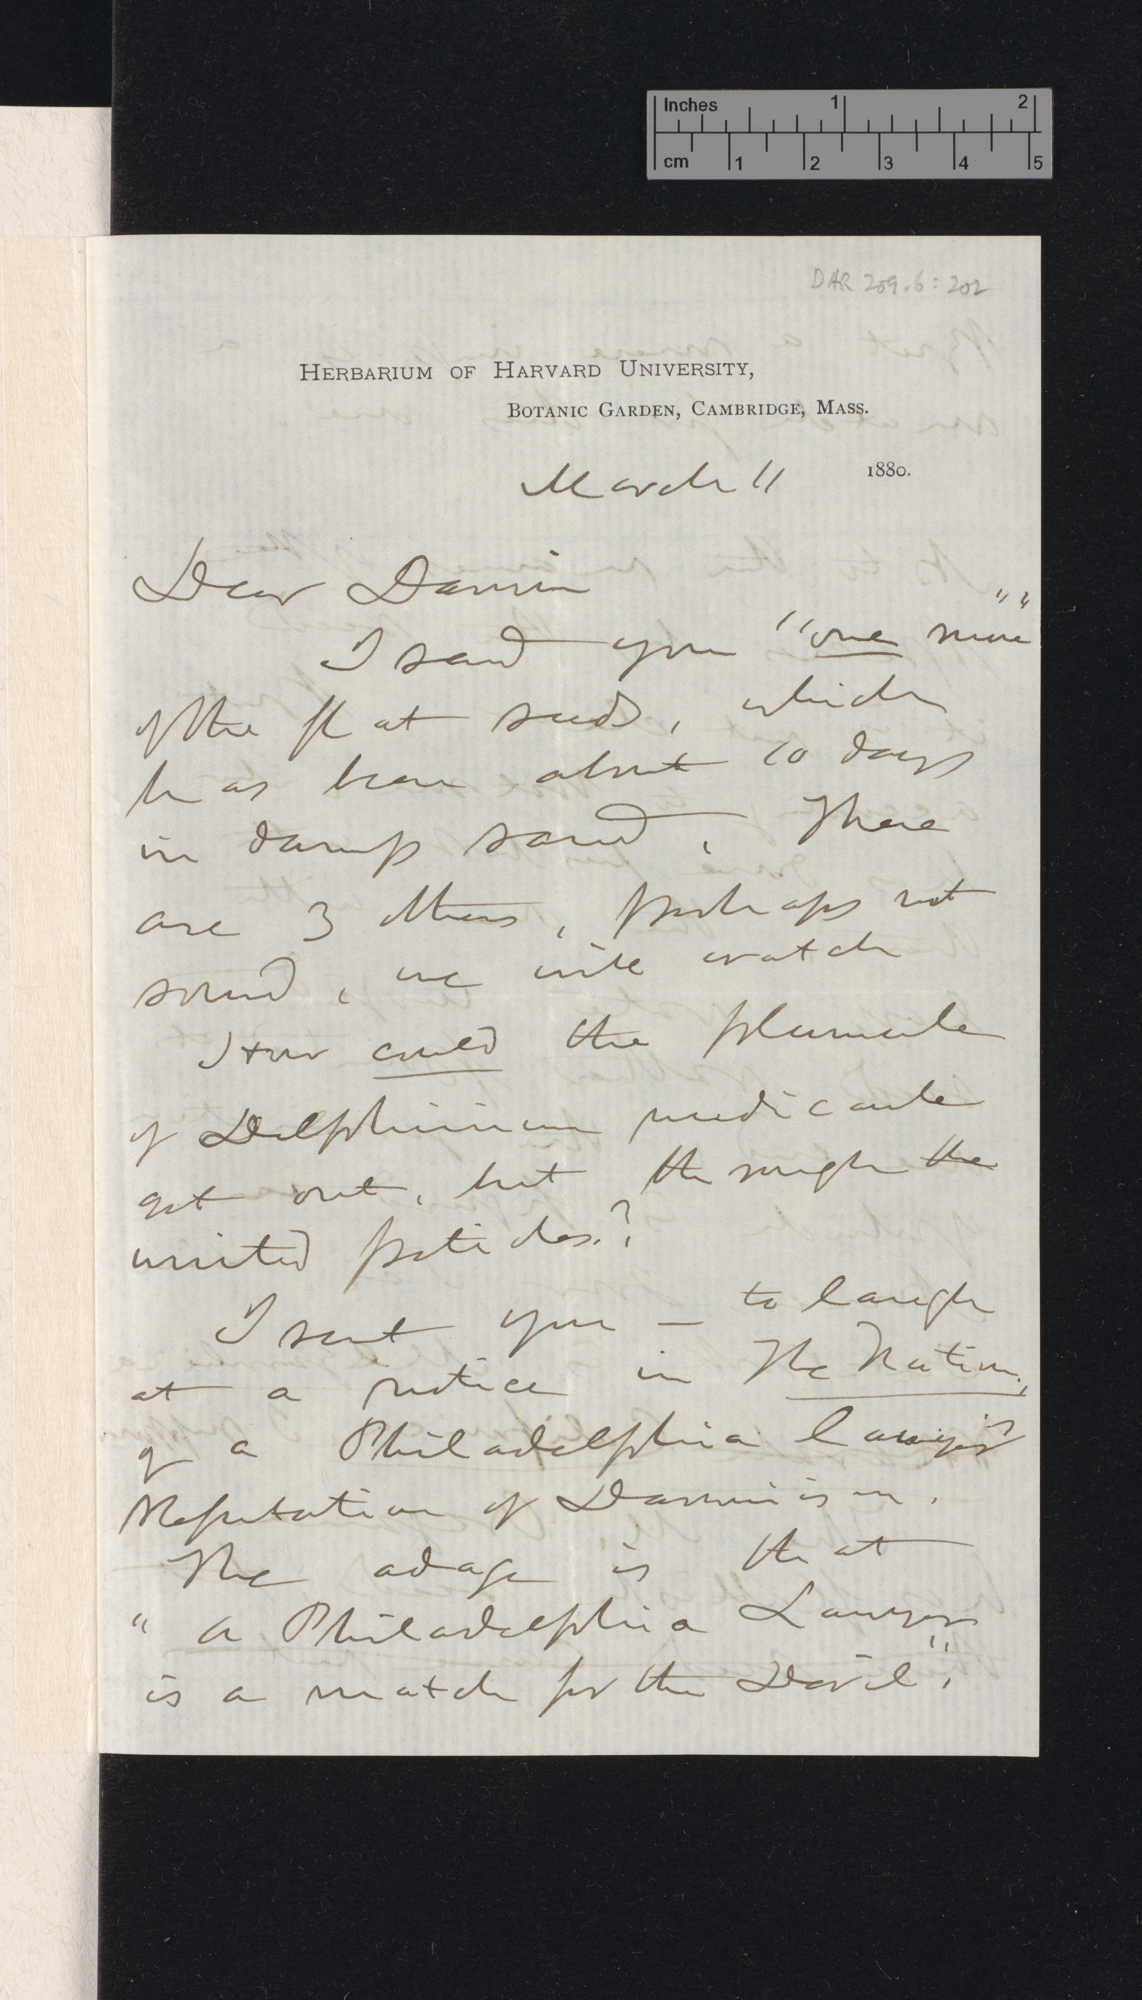 Inches 1 2
cm 1 2 3 4 5
DAR 209.6: 202
Herbarium of Harvard University,
Botanic Garden, Cambridge, Mass.
March 11 1880.
Dear Darwin
I send you "one more"
of the flat seeds, which
has been about 10 days
in damp sand. There
are 3 others, perhaps not
sound, we will watch
How could the plumule
of Delphinium nudicaule
get out, but through the
united petioles.?
I sent you — to laugh
at a notice in The Nation,
of a Philadelphia lawyer's
Refutation of Darwinism.
The adage is that
"a Philadelphia Lawyer
is a match for the Devil".